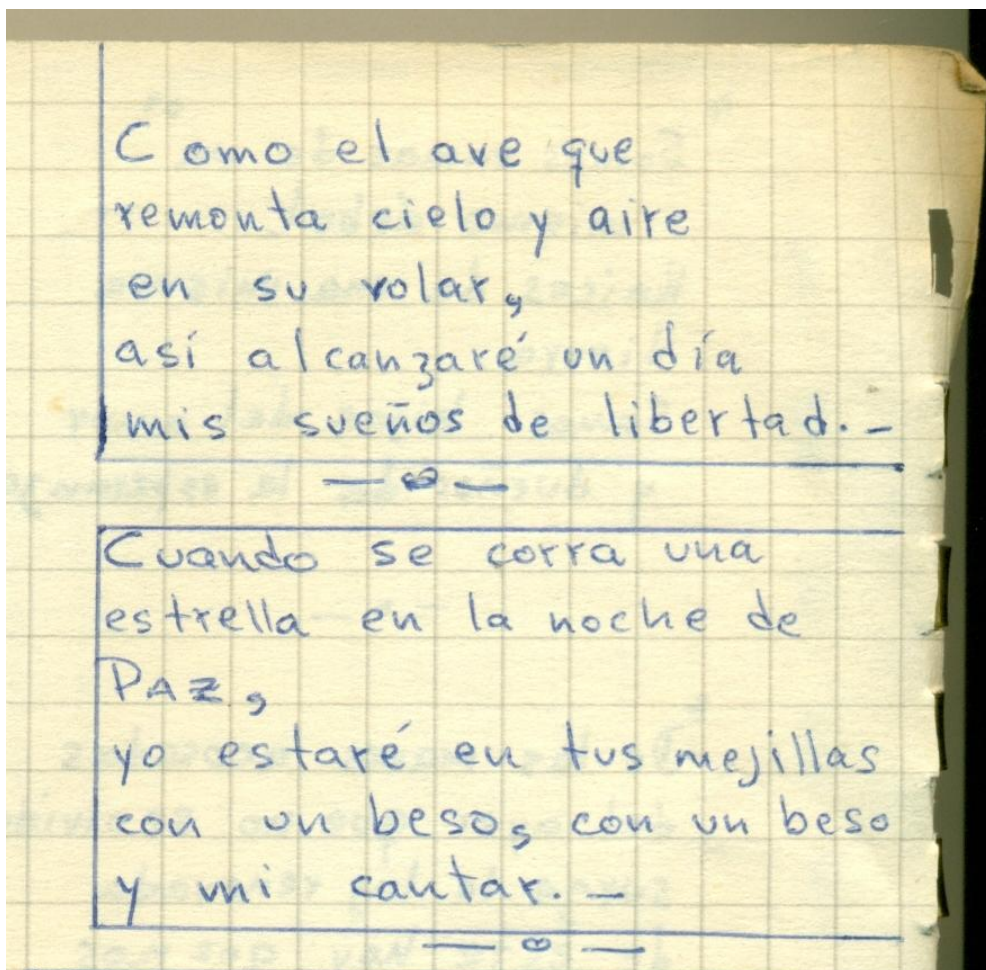 Como el ave que
remonta cielo y aire
en su volar,
así alcanzaré un día
mis sueños de libertad.-
Cuando se corra una
estrella en la noche de
PAZ,
yo estaré en tus mejillas
con un beso, con un beso
y mi cantar.-